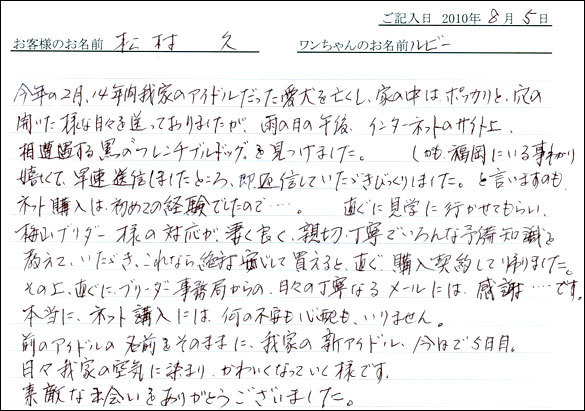 ご記入日 2010年 8月 5日
お客様のお名前 松村 久 ワンちゃんのお名前 ルビー
今年の2月、14年間我家のアイドルだった愛犬を亡くし、家の中はポッカリと、穴の
開いた様な日々を送っておりましたが、雨の日の午後、インターネットのサイト上、
相遭遇する黒のフレンチブルドッグを見つけました。 しかも、福岡にいる事わかり
嬉しくて、早速送信しましたところ、即返信していただきびっくりしました。と言いますのも、
ネット購入は、初めての経験でしたので…。 直ぐに見学に行かせてもらい、
梅山ブリダー様の対応が、凄く良く、親切、丁寧でいろんな予備知識を
教えていただき、これなら絶対安心して買えると、直ぐ、購入契約して帰りました。
その上、直ぐに、ブリーダー事務局からの、日々の丁寧なるメールには、感謝…です。
本当に、ネット購入には、何の不安も心配も、いりません。
前のアイドルの名前をそのままに、我家の新アイドル、今日で5日目。
日々我家の空気に染まり、かわいくなっていく様です。
素敵な出会いをありがとうございました。